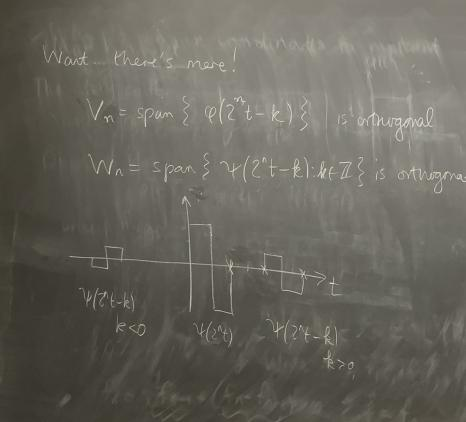 Want... there's more!
Vₙ = span { φ(2ⁿt-k) } is orthogonal
Wₙ = span { ψ(2ⁿt-k): k∈ℤ } is orthogona
t
ψ(2ⁿt-k)
k<0
ψ(2ⁿt)
ψ(2ⁿt-k)
k>0